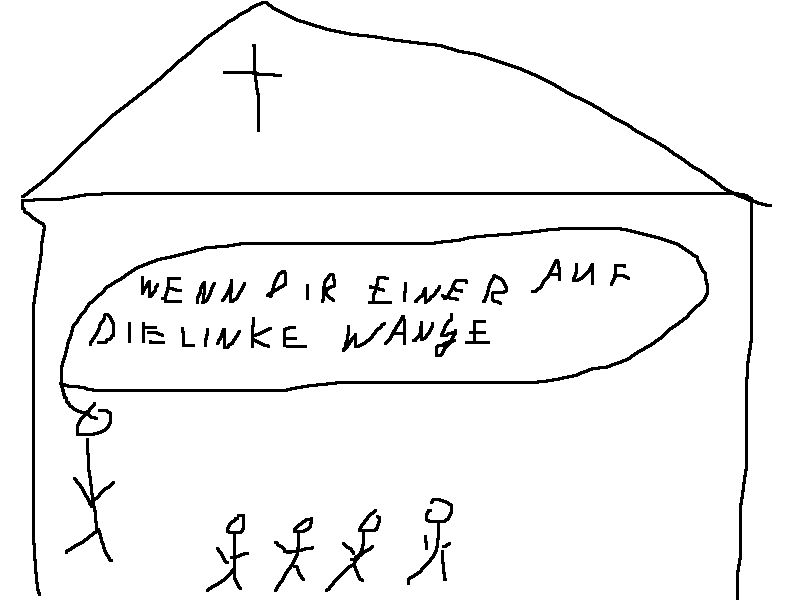 WENN DIR EINER AUF
DIE LINKE WANGE